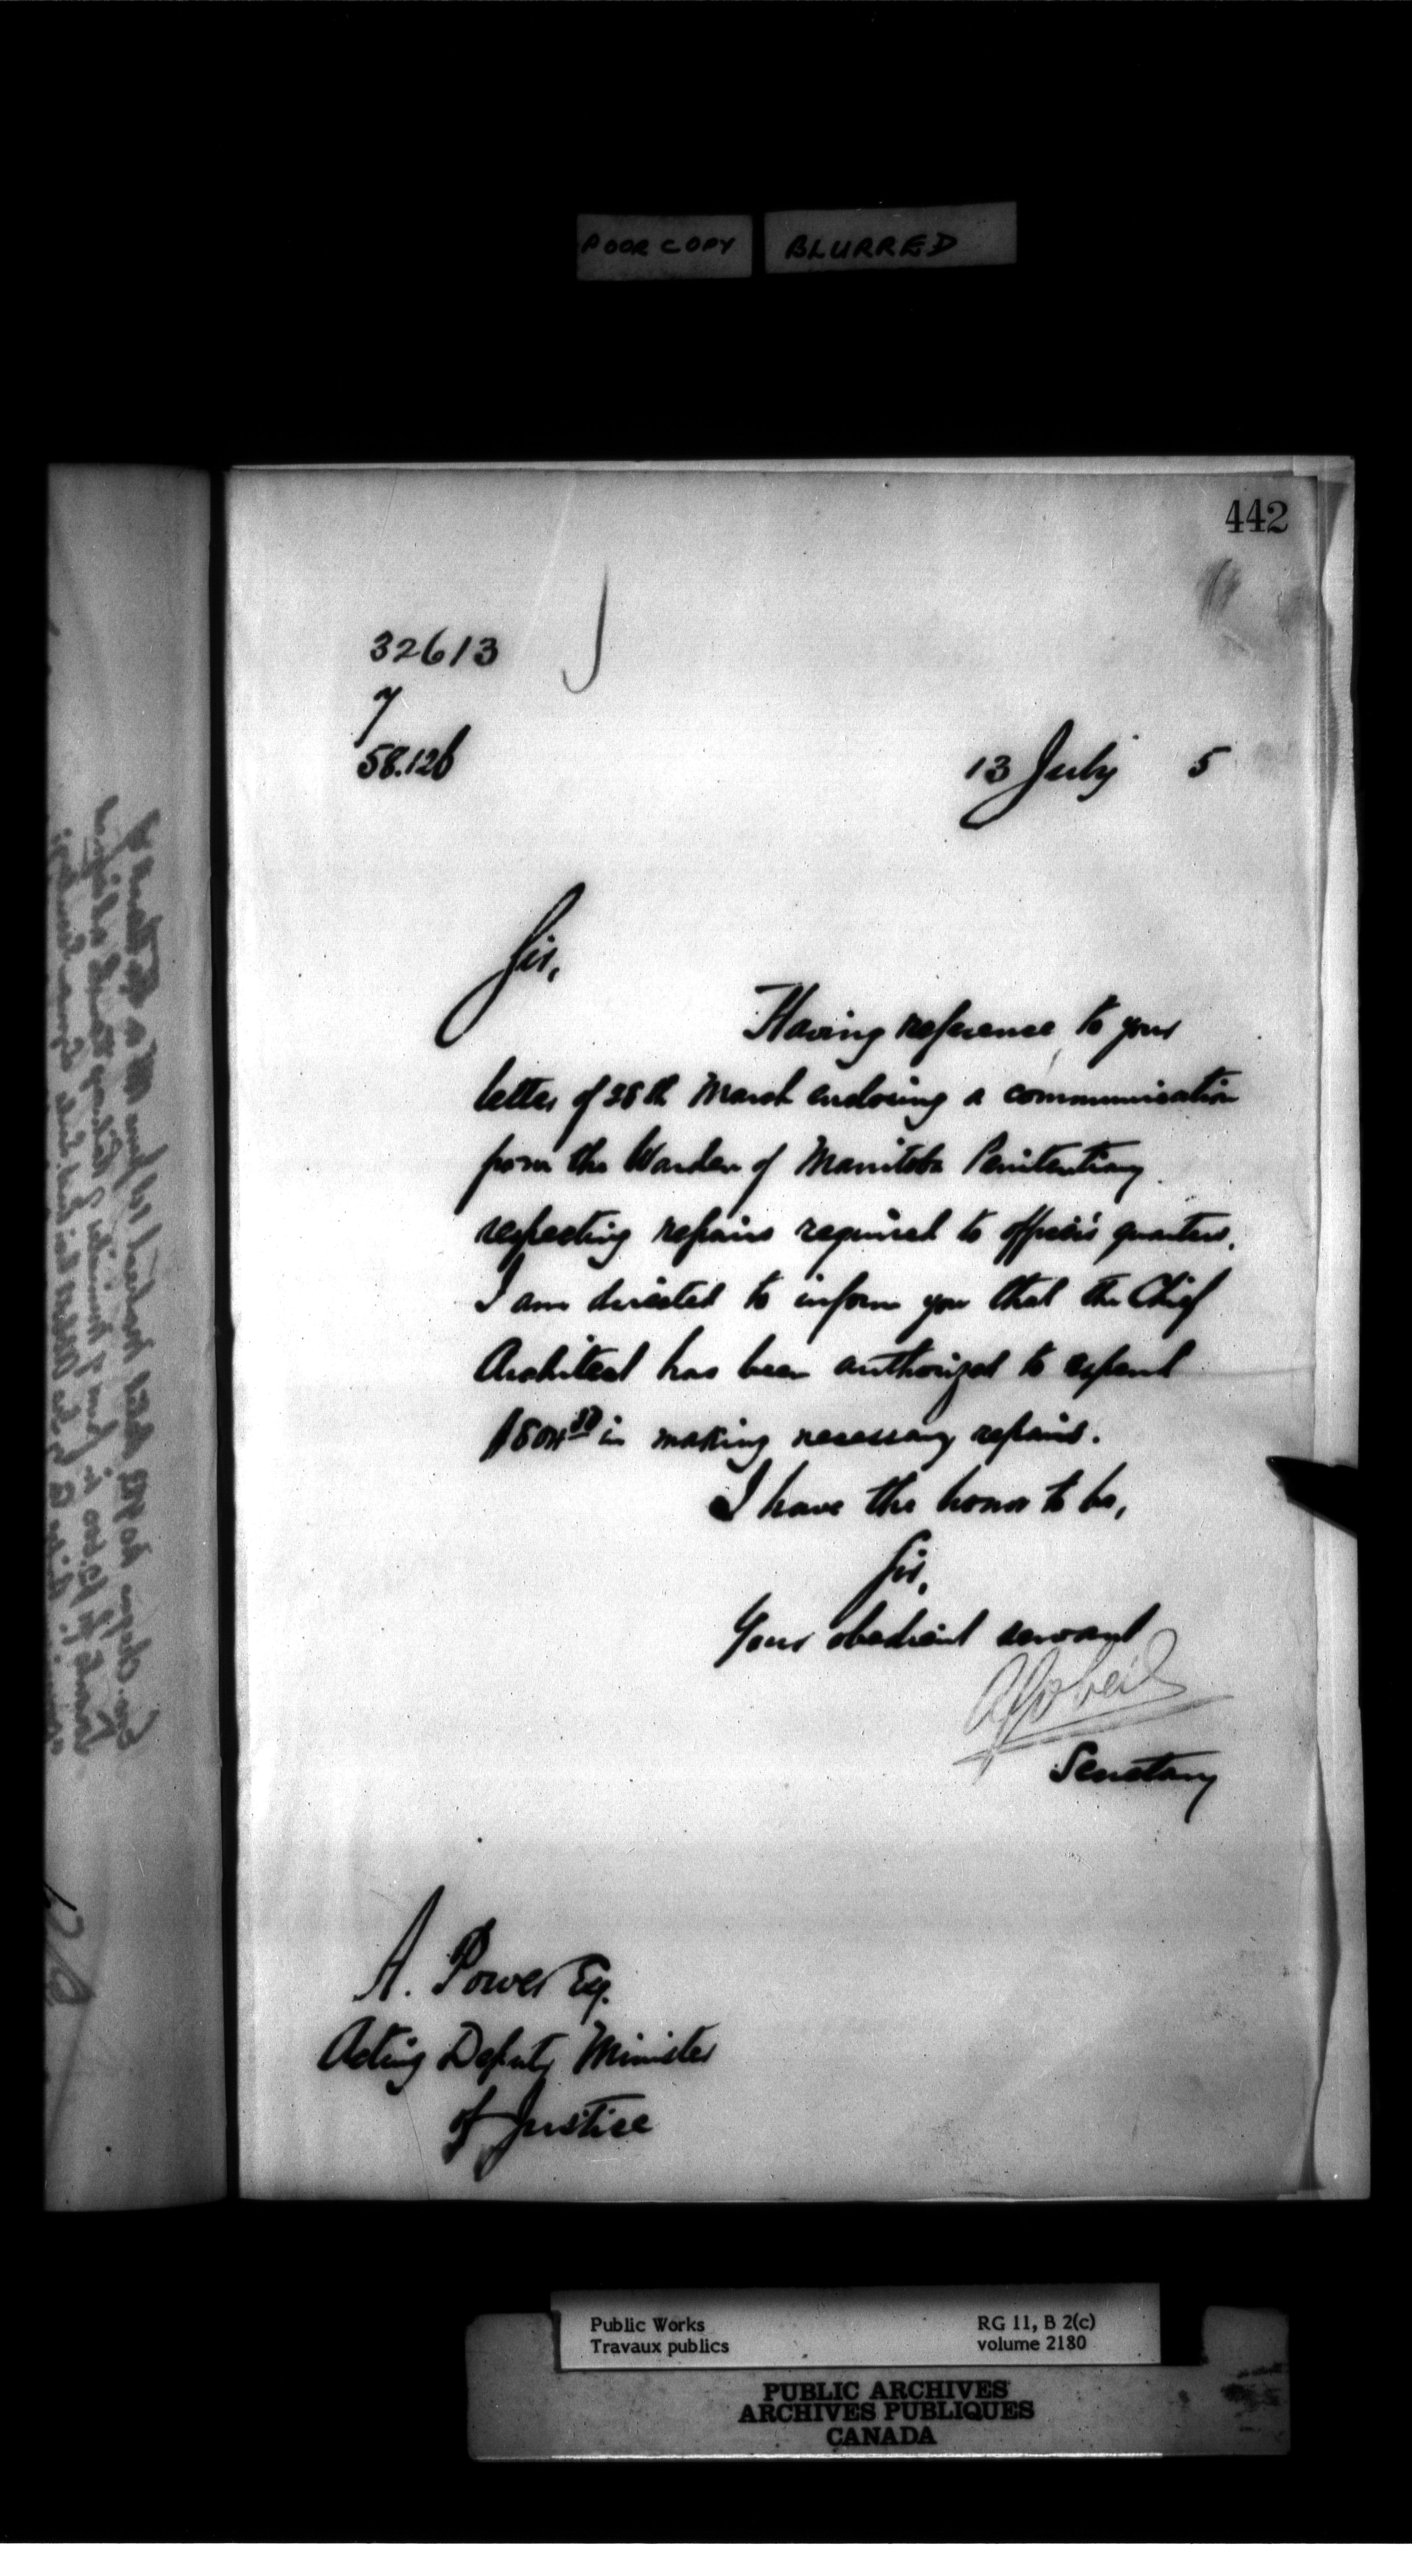 POOR COPY BLURRED
442
32613
7
58.126
13 July 5
Sir,
Having reference to your
letter of 28th March enclosing a communication
from the Warden of Manitoba Penitentiary
respecting repairs required to officers quarters,
I am directed to inform you that the Chief
Architect has been authorized to expend
in making necessary repairs.
I have the honor to be,
Sir,
Your obedient servant
AGobeil
Secretary
A. Power Esq.
Acting Deputy Minister
of Justice
Public Works RG 11, B 2(c)
Travaux publics volume 2180
PUBLIC ARCHIVES
ARCHIVES PUBLIQUES
CANADA